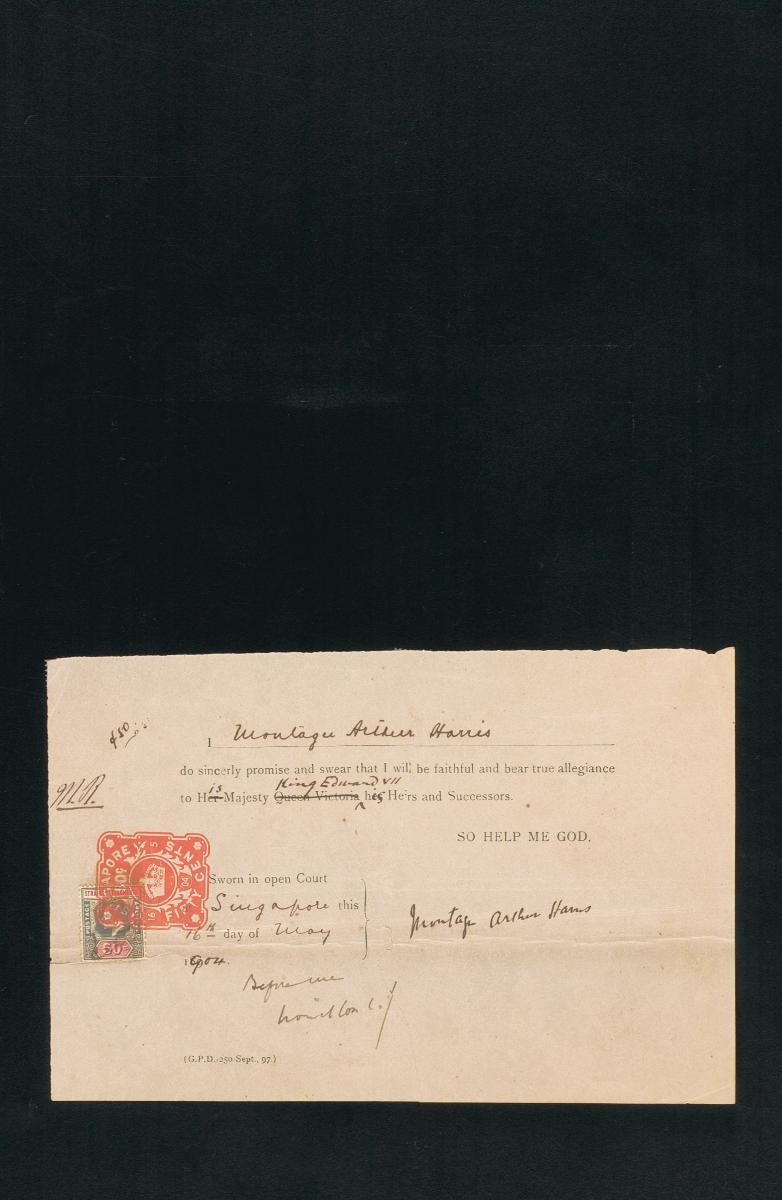 $50
I Montague Arthur Harris
do sincerly promise and swear that I will be faithful and bear true allegiance
is King Edward VII
to Her Majesty Queen Victoria his Heirs and Successors.
SO HELP ME GOD.
SINGAPORE
50c
FIFTY CENTS
POSTAGE
50c
Sworn in open Court
Singapore this
16th day of May
1904.
Montague Arthur Harris
Before me
(G.P.D.-250-Sept., 97.)